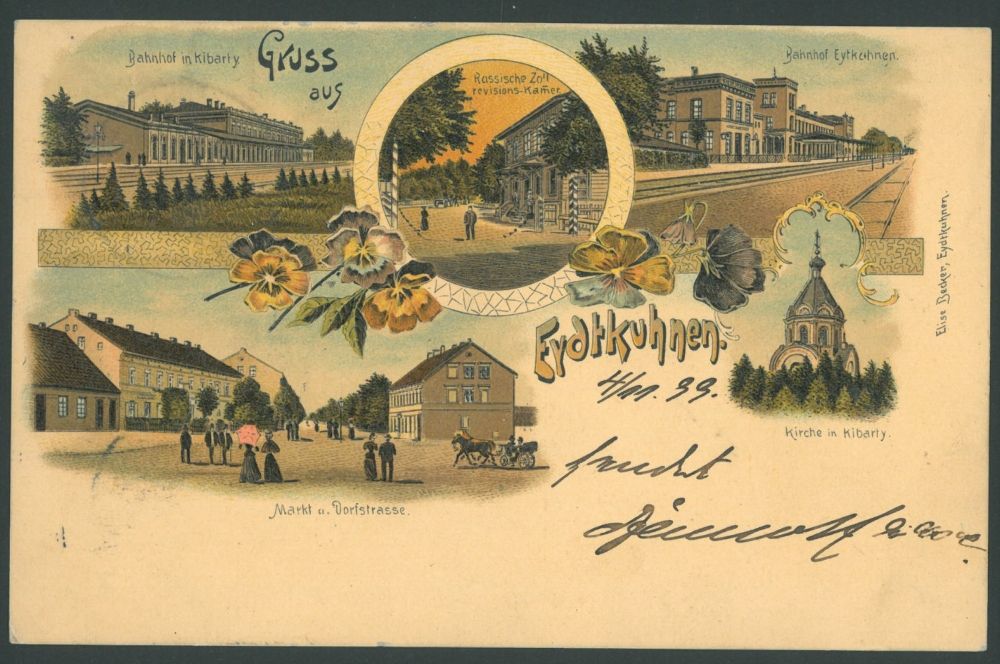 Bahnhof in Kibarty.
Gruss
aus
Russische Zoll
revisions-Kamer.
Bahnhof Eytkuhnen.
Elise Becker, Eydtkuhnen.
Eydtkuhnen.
4/11.99.
sendet
Kirche in Kibarty.
Markt u. Dorfstrasse.